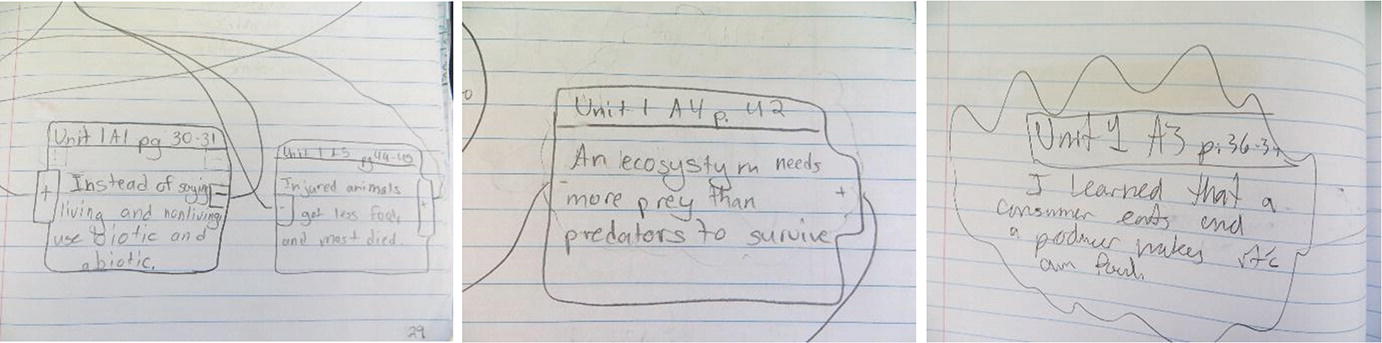 Unit 1 A1 pg 30-31
+
Instead of saying
living and nonliving
use biotic and
abiotic.
Unit 1 A5 pg 44-45
Injured animals
get less food
and most died.
+
29
Unit 1 A4 p. 42
An ecosystym needs
more prey than
predators to survive
+
Unit 1 A3 p. 36-37
I learned that a
consumer eats and
a producer makes its
own food.